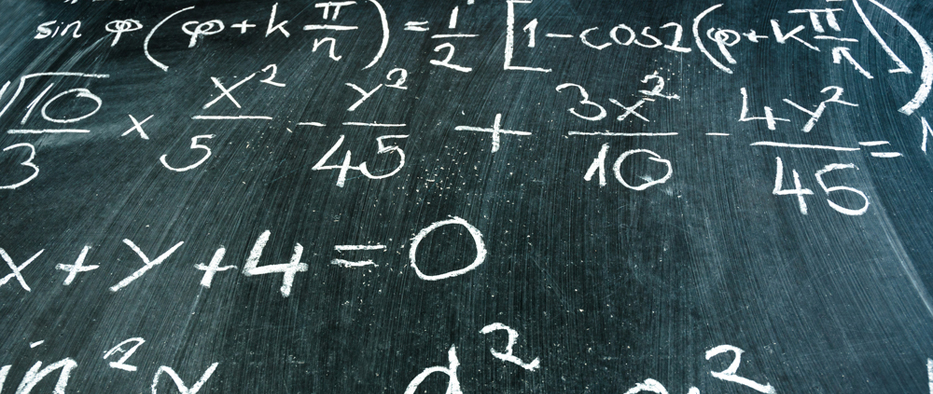 sin φ(φ+k π/n)=1/2[1-cos2(φ+kπ/n)
√10/3 × x²/5 - y²/45 + 3x²/10 - 4y²/45 =
x+y+4=0